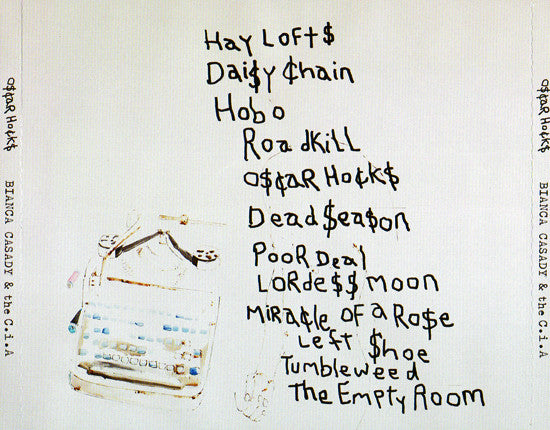 Hay Loft$
Dai$y ¢hain
Hobo
Roadkill
O$¢aR Ho¢k$
Dead $ea$on
Poor Deal
Lorde$$ moon
MiRa¢le of a Ro$e
Left $hoe
Tumbleweed
The Empty Room
O$¢aR Ho¢k$ BIANCA CASADY & the C.i.A
O$¢aR Ho¢k$ BIANCA CASADY & the C.i.A